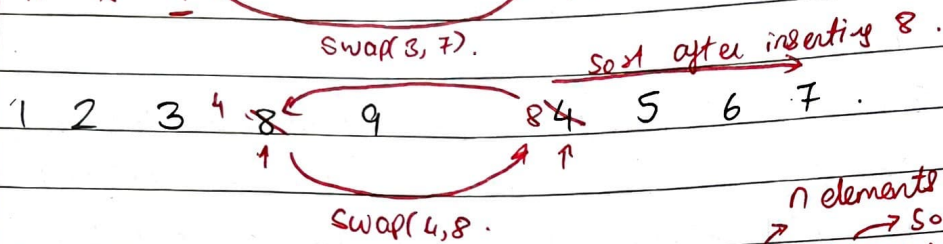 swap(3, 7).
Sort after inserting 8.
1 2 3 4 8 9 8 4 5 6 7 .
swap(4,8.
n elements
→ So